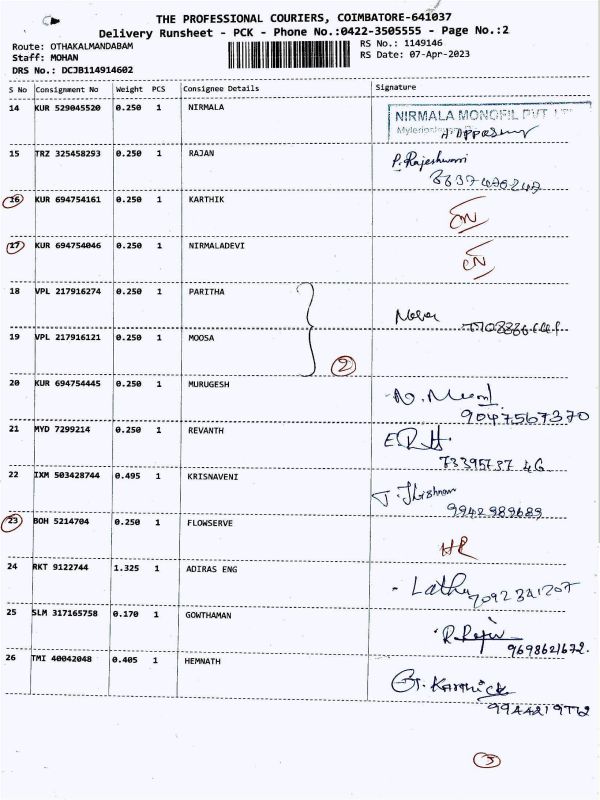 THE PROFESSIONAL COURIERS, COIMBATORE-641037
Delivery Runsheet - PCK - Phone No.:0422-3505555 - Page No.:2
Route: OTHAKALMANDABAM RS No.: 1149146
Staff: MOHAN RS Date: 07-Apr-2023
DRS No.: DCJB114914602
S No Consignment No Weight PCS Consignee Details Signature
14 KUR 529045520 0.250 1 NIRMALA
NIRMALA MONOFIL PVT LTD
15 TRZ 325458293 0.250 1 RAJAN P. Rajeshwari
16 KUR 694754161 0.250 1 KARTHIK
17 KUR 694754046 0.250 1 NIRMALADEVI
18 VPL 217916274 0.250 1 PARITHA
19 VPL 217916121 0.250 1 MOOSA
2
20 KUR 694754445 0.250 1 MURUGESH
9047567370
21 MYD 7299214 0.250 1 REVANTH
73395737 46
22 IXM 503428744 0.495 1 KRISNAVENI
9942989689
23 BOH 5214704 0.250 1 FLOWSERVE
24 RKT 9122744 1.325 1 ADIRAS ENG Latha
25 SLM 317165758 0.170 1 GOWTHAMAN
9698621672.
26 TMI 40042048 0.405 1 HEMNATH
G. Karthick